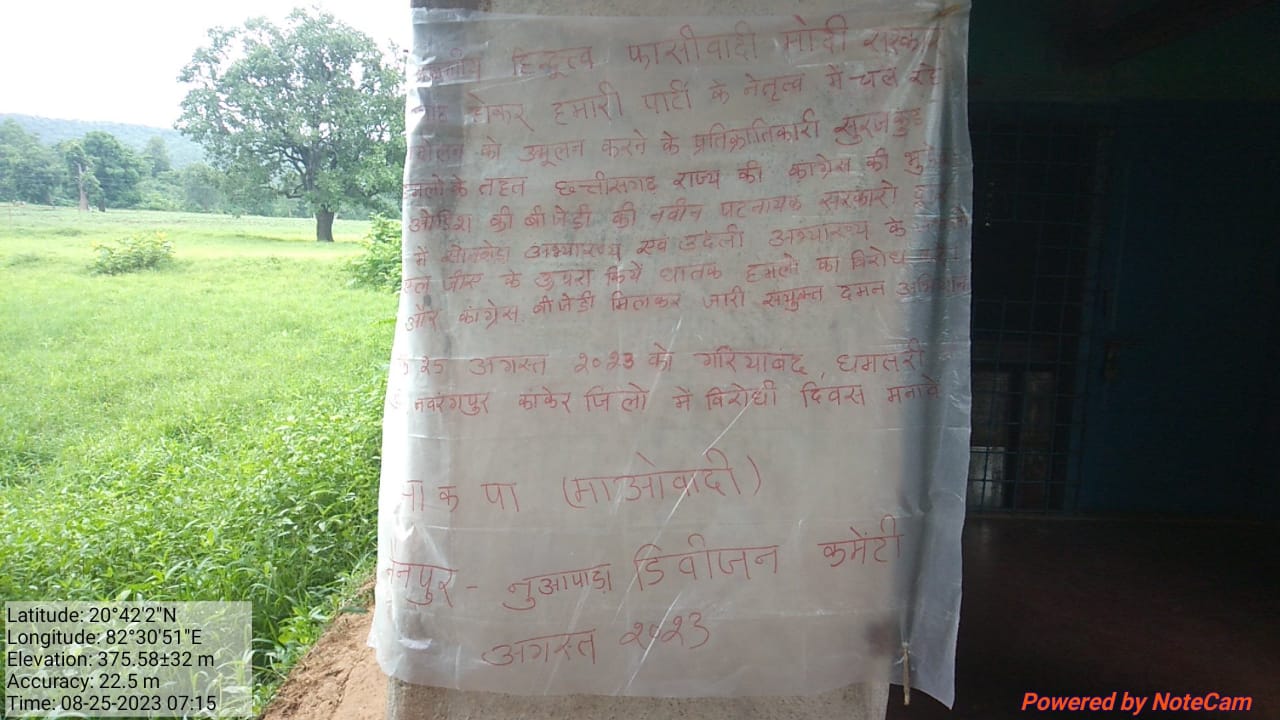 हिन्दुत्व फासीवादी मोदी सरकार
होकर हमारी पार्टी के नेतृत्व में चल रहे
को उमूलन करने के प्रतिक्रांतिकारी सुरजकुंड
हमलो के तहत छत्तीसगढ राज्य की कांग्रेस की
ओडिशा की बीजेडी की नवीन पटनायक सरकारो
में सीतानदी अभ्यारण्य एवं उदंती अभ्यारण्य के
के ऊपरा किये घातक हमलो का विरोध
और कांग्रेस, बीजेडी मिलकर जारी संयुक्त दमन
25 अगस्त २०२३ को गरियाबंद, धमतरी
नवरंगपुर कांकेर जिलो में विरोधी दिवस मनावे
भा क पा (माओवादी)
मैनपुर - नुआपाड़ा डिवीजन कमेंटी
अगस्त २०२३
Latitude: 20°42'2"N
Longitude: 82°30'51"E
Elevation: 375.58±32 m
Accuracy: 22.5 m
Time: 08-25-2023 07:15
Powered by NoteCam